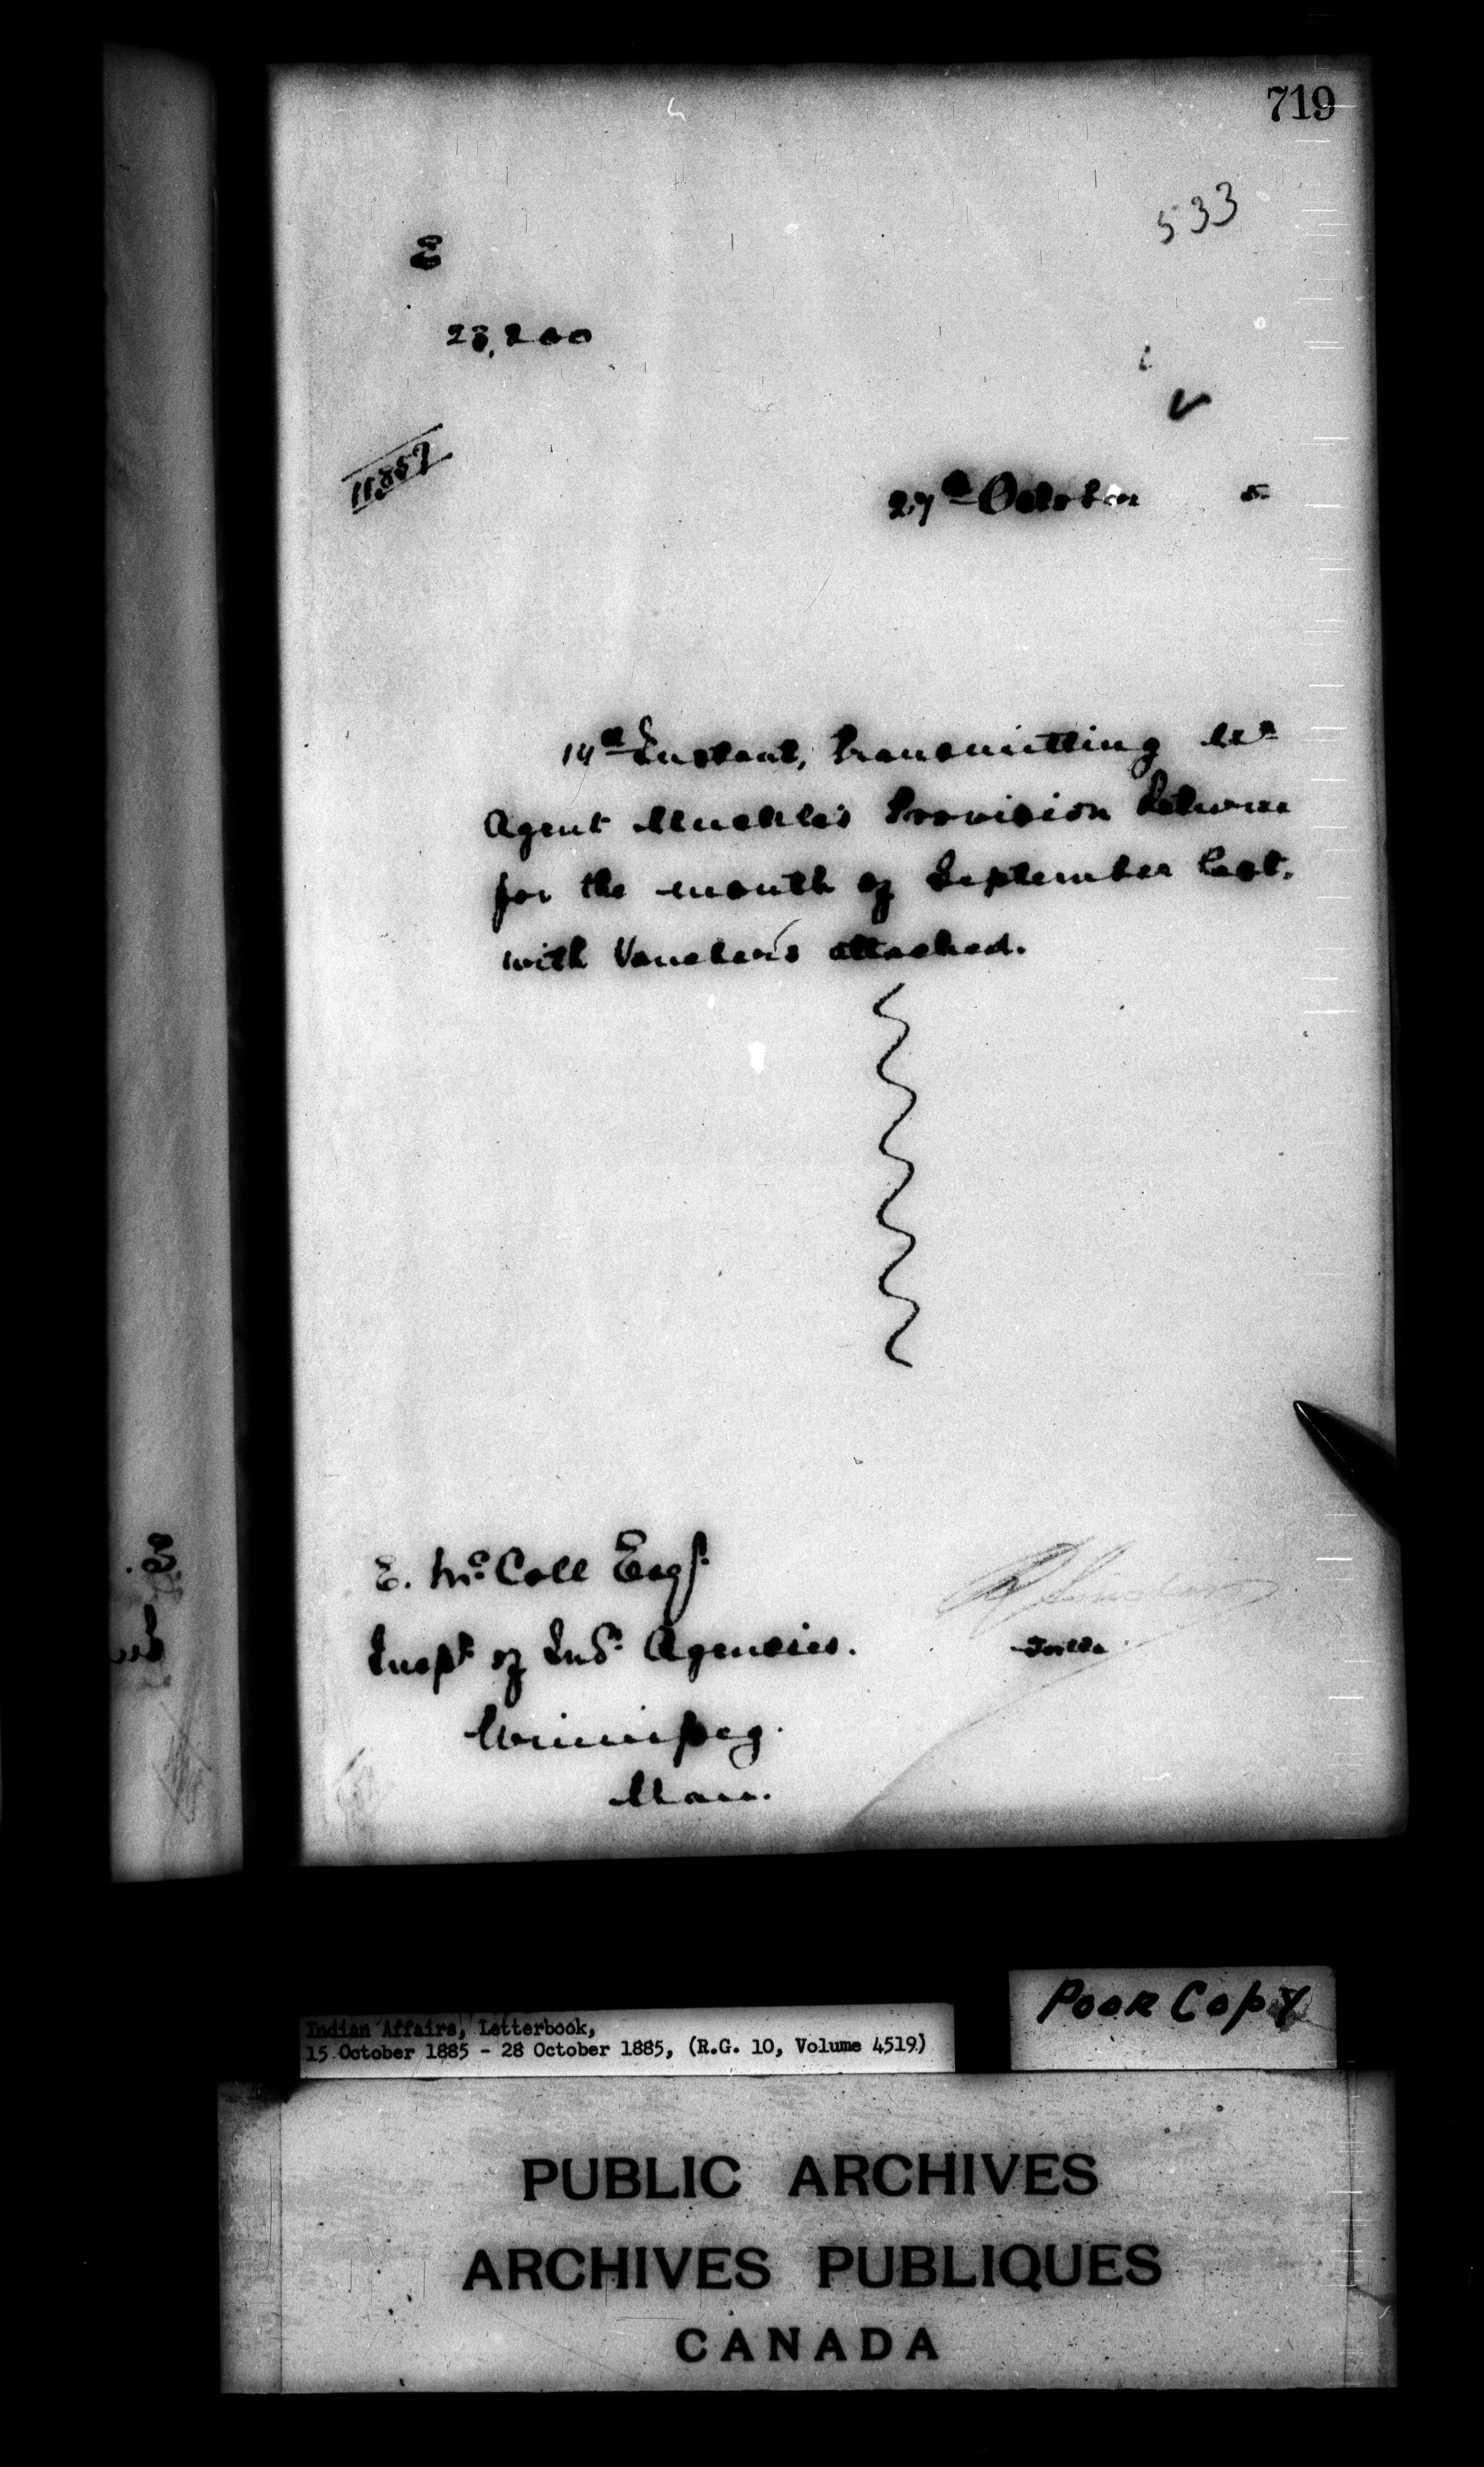 719
533
E
23,200
11,857
27th October 5
14th Instant, transmitting Mr
Agent Muckle's Provision Returns
for the month of September last,
with Voucher's attached.
E. McColl Esqr.
Inspr. of Ind. Agencies.
Winnipeg.
Man.
Indian Affairs, Letterbook,
15 October 1885 - 28 October 1885, (R.G. 10, Volume 4519)
Poor Copy
PUBLIC ARCHIVES
ARCHIVES PUBLIQUES
CANADA